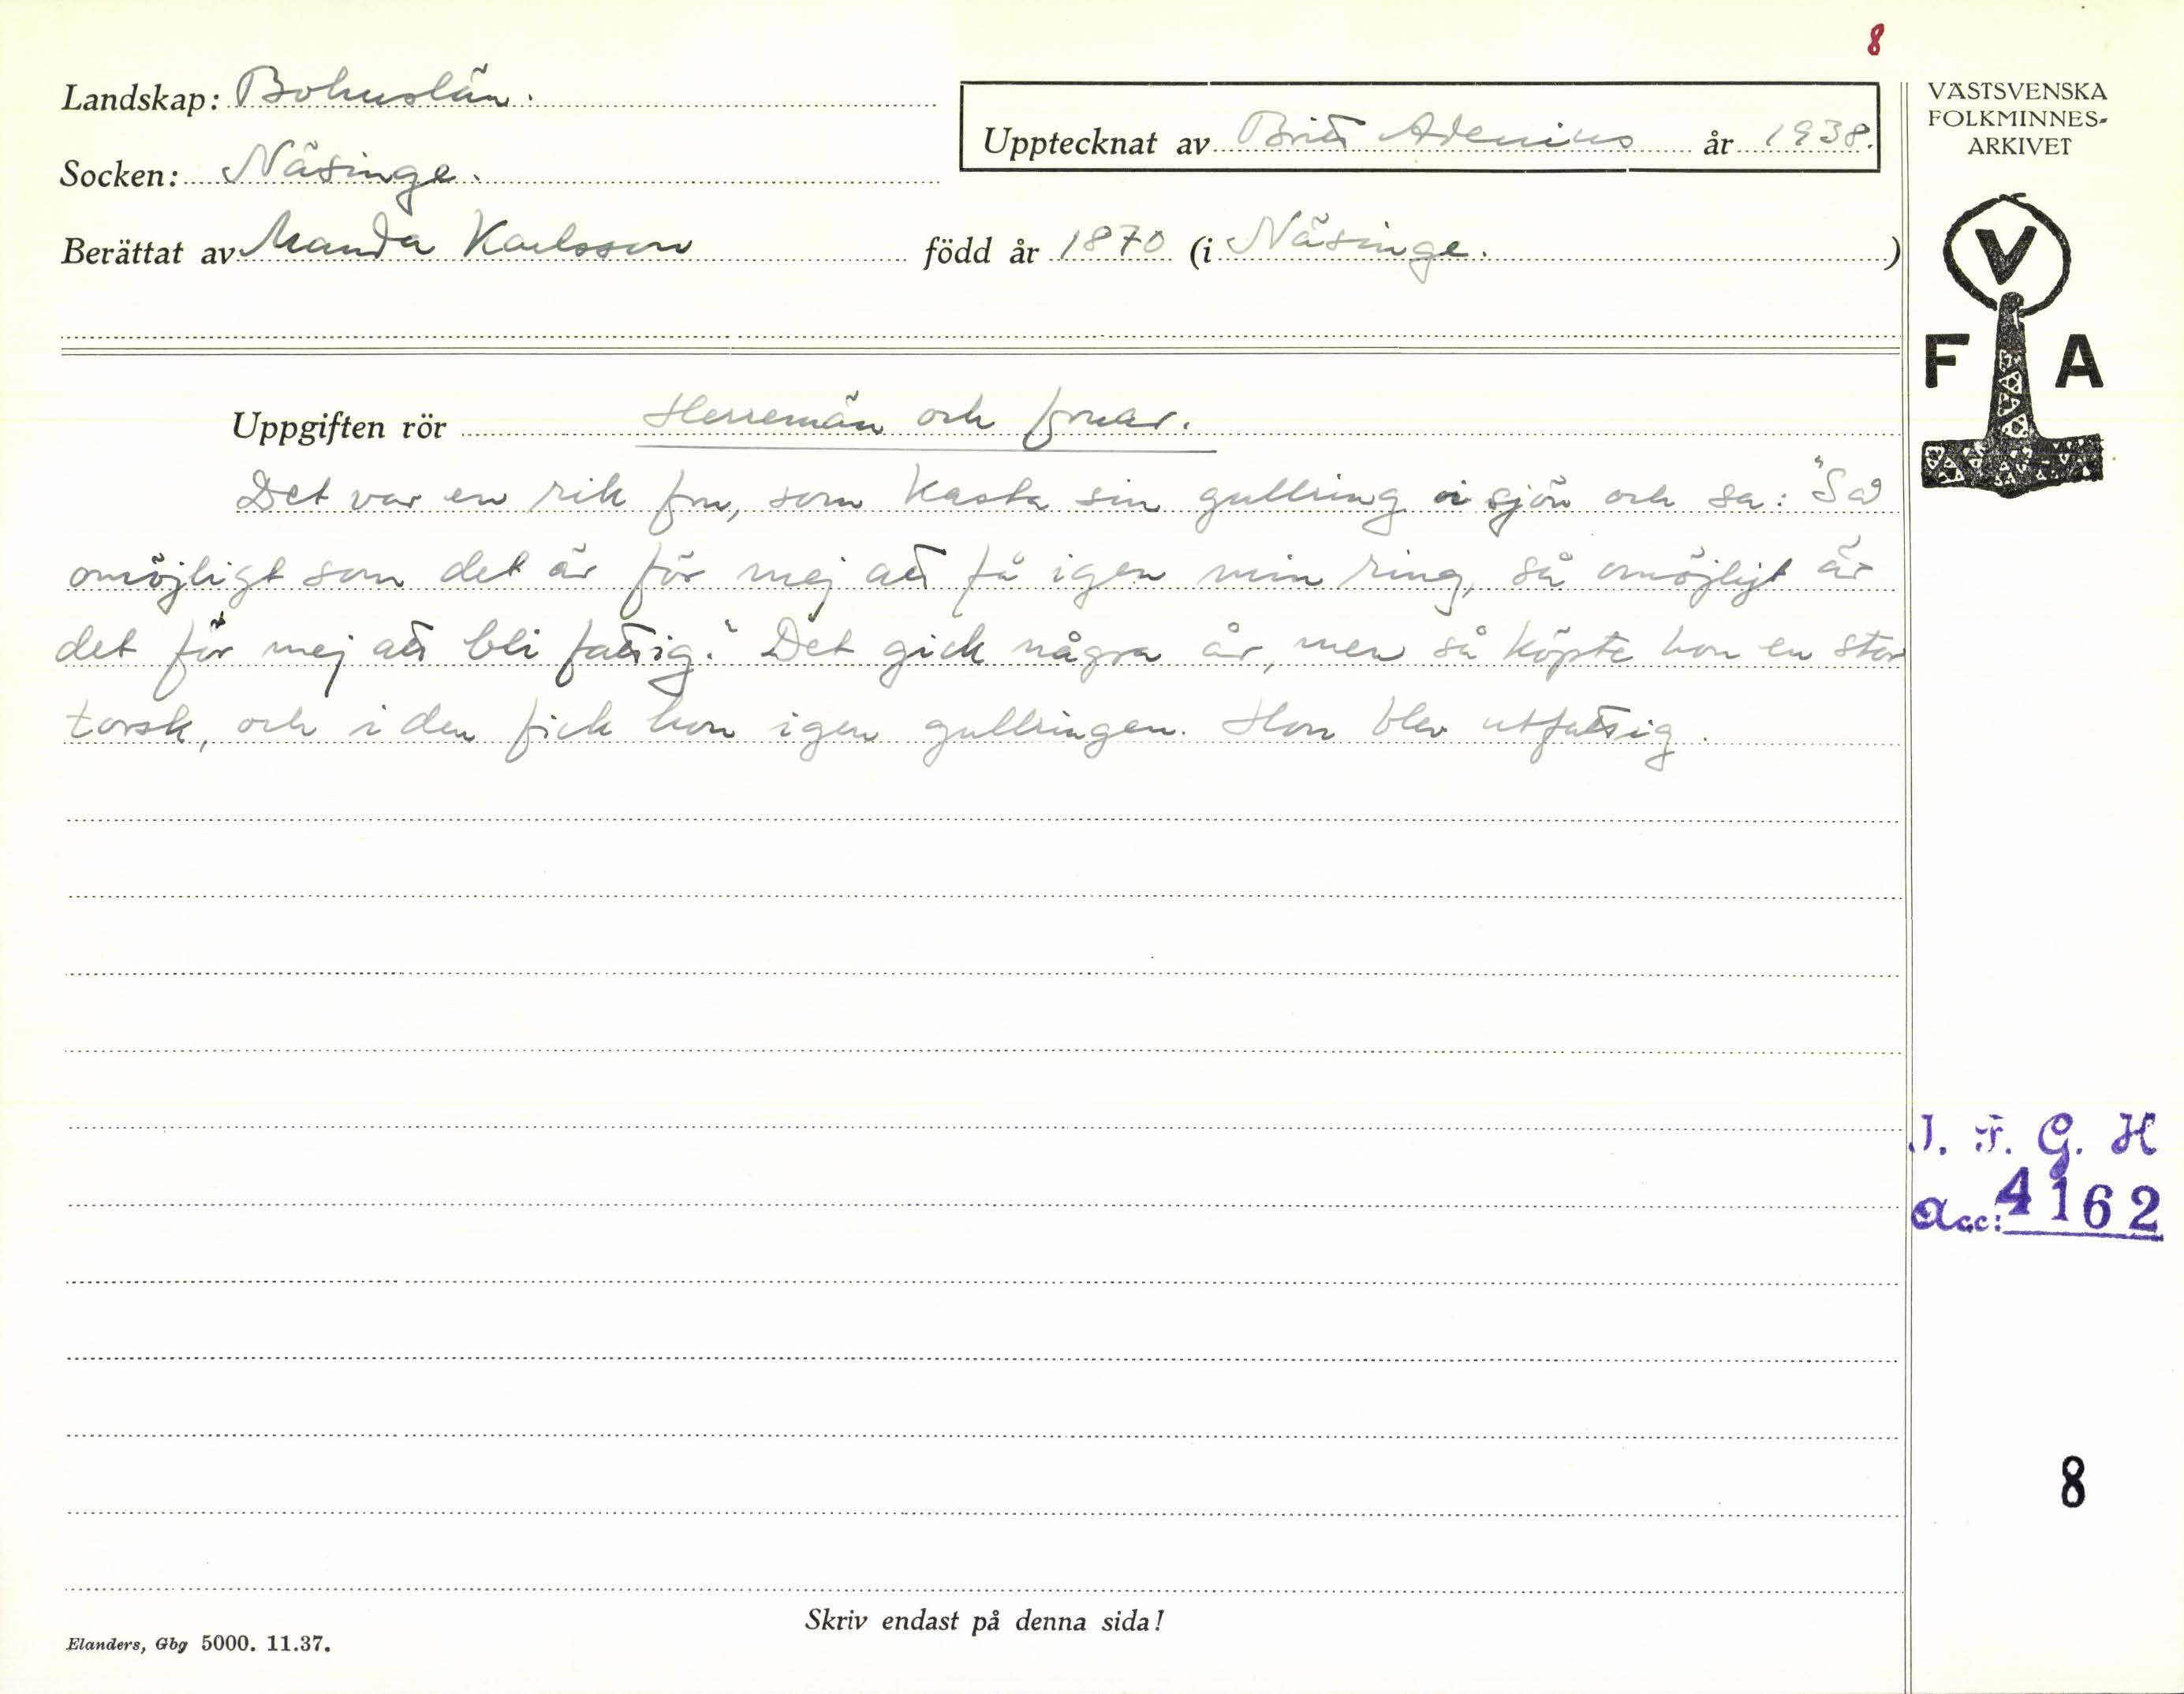 8
Landskap: Bohuslän.
Socken: Näsinge.
Upptecknat av Britt Adenius år 1938.
Berättat av Manda Karlsson född år 1870 (i Näsinge.)
VÄSTSVENSKA
FOLKMINNES-
ARKIVET
V
F A
Uppgiften rör Herremän och fruar.
Det var en rik fru, som kasta sin gullring i sjön och sa: "Så
omöjligt som det är för mej att få igen min ring, så omöjligt är
det för mej att bli fattig." Det gick några år, men så köpte hon en stor
torsk, och i den fick hon igen gullringen. Hon blev utfattig.
I. F. G. H
Acc: 4162
8
Skriv endast på denna sida!
Elanders, Gbg 5000. 11.37.